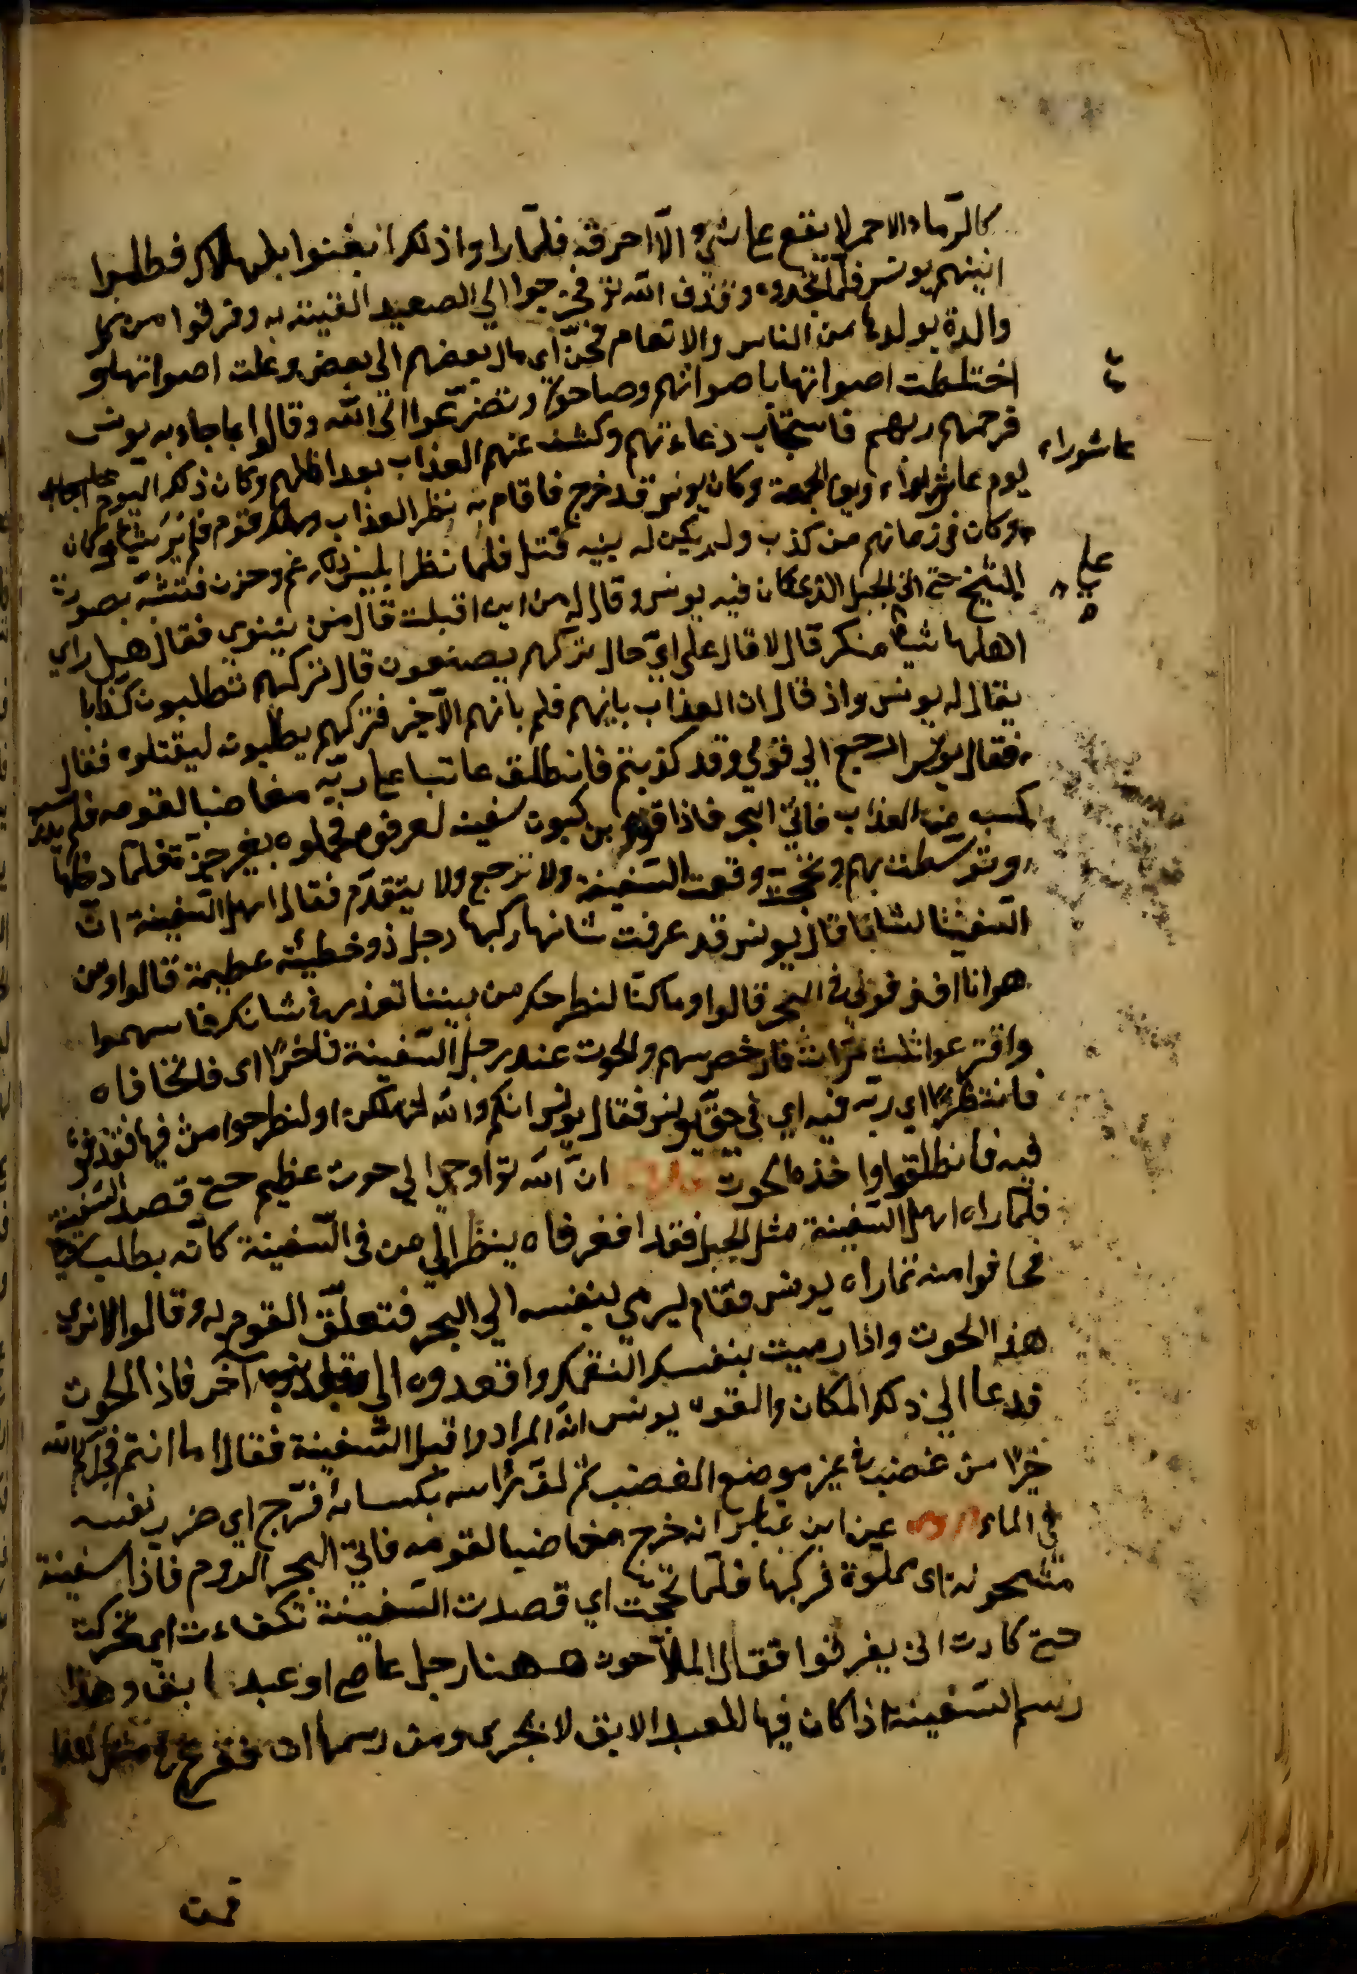 كالرماد الاحمر لا يقع على شئ الا احرقه فلما راوا ذلك ايقنوا بالهلاك فطلبوا
نبيهم يونس فلم يجدوه وقذف الله تو فخرجوا الي الصعيد القينة به وفرقوا من كل
والدة بولدها من الناس والانعام فحن اي مال بعضهم الي بعض وعلت اصواتها و
اختلطت اصواتها باصواتهم وصاحوا وتضرعوا الى الله وقالوا بما جاء به يونس
فرحمهم ربهم فاستجاب دعاءهم وكشف عنهم العذاب بعد اظلهم وكان ذلك اليوم
يوم عاشوراء ويوم الجمعة وكان يونس قد خرج فاقام ينظر العذاب وهلاك قومه فلم ير شيئا وكان
وكان في زمانهم من كذب ولم يكن له بينة قتل فلما نظر ابليس ذلك غم وحزن فتشبه بصورة
الشيخ حتى اتى الجبل الذي كان فيه يونس وقال له من اين اقبلت قال من نينوى فقال هل راي
اهلها شيئا منكر قال لا قال على اي حال تركتهم يصنعون قال تركتهم يطلبون كذابا
يقال له يونس واذ قال ان العذاب ياتيهم فلم ياتهم الآخر فتركتهم يطلبون ليقتلوه فقال
فقال يونس ارجع الي قومي وقد كذبتم فانطلق عاتبا على ربه مغاضبا لقومه فلم
كسبه من العذاب فاتى البحر فاذا قوم يركبون سفينة لعرفوه فحملوه بغير جيزة فلما دخلها
وتوسطت بهم ولججت وقعت السفينة ولا ترجع ولا يتقدم فقال اهل السفينة ان
السفينتنا لشانا قال يونس قد عرفت شانها ركبها رجل ذو خطيئة عظيمة قالوا ومن
هو انا اقذفوني في البحر قالوا وما كنا لنطرحك من بيننا تعذر في شانك فاسهموا
واقترعوا ثلث مرات فادحض سهمه والحوت عند رجل السفينة فاغرا اى فاتحا فاه
فانتظر اي ربه فيه اي في حق يونس فقال يونس انكم والله لتهلكن او لنطرحوا مني فيها فقذفو
فيه فانطلقوا واخذه الحوت ان الله تو اوحى الي حوت عظيم حتى قصد السفينة
فلما راه اهل السفينة مثل الجبل فقد افغر فاه ينظر الي من في السفينة كانه يطلب شيئا
فخافوا منه فما راه يونس فقام ليرمي بنفسه الي البحر فتعلق القوم به وقالوا الا ترى
هذه الحوت واذا رميت بنفسك التقمك واقعدوه الي جانب آخر فاذا الحوت
قد عاد الي ذلك المكان والقوا يونس انه المراد اقبل السفينة فقال ما انتم
خيرا من غضب في غير موضع الغضب ثم لف راسه بكسائه فزج اي ضرب نفسه
في الماء عن ابن عباس انه خرج مغاضبا لقومه فاتى البحر الروم فاذا سفينة
مشحونة اى مملوة فركبها فلما لججت اي قصدت السفينة تكفاءت اي تحركت
حتى كادت ان يغرقوا فقال الملاحون ههنا رجل عاصي او عبد ابق وهذا
رسم السفينة اذا كان فيها العبد الابق لا تجري ومن رسمنا ان نقرع في مثل هذا
عاشوراء
عليه
قمت